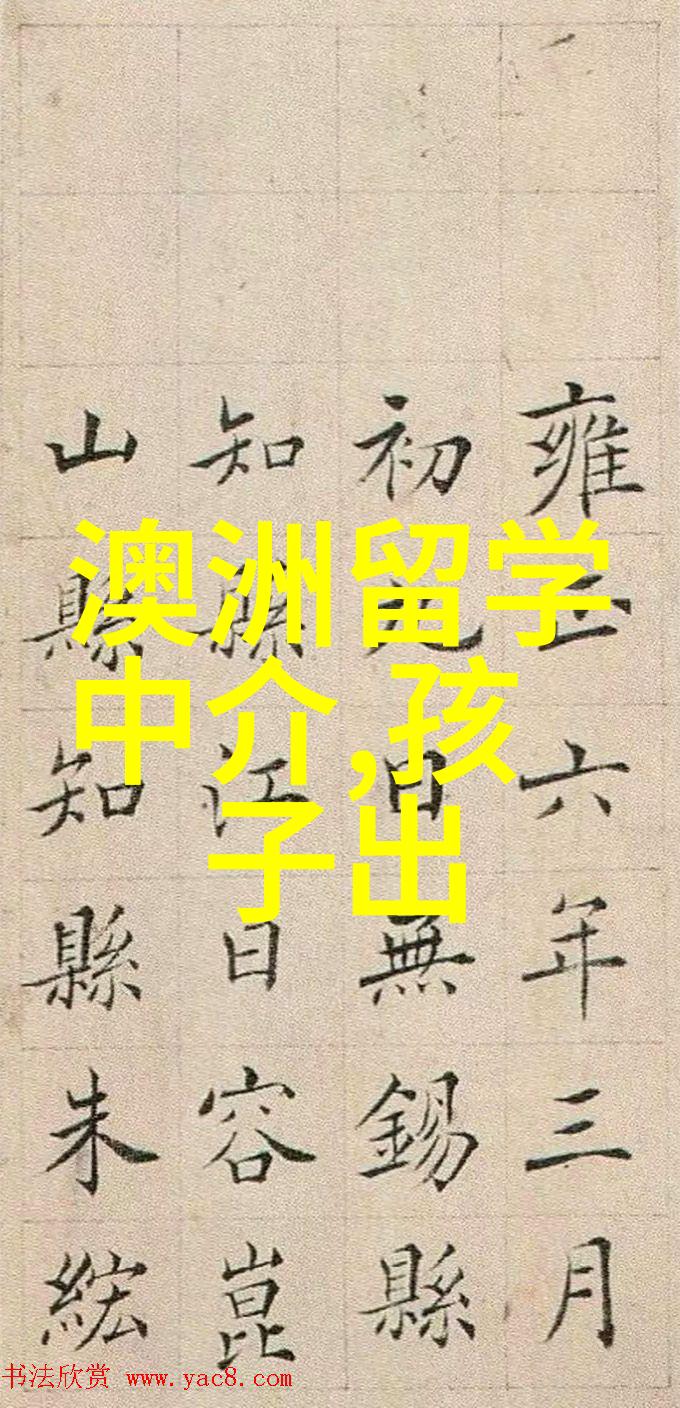 澳洲留学
中介,孩
子出
雍正六年三月
初日無錫縣
知縣江日容崑
山縣知縣朱紘
书法欣赏 www.yac8.com